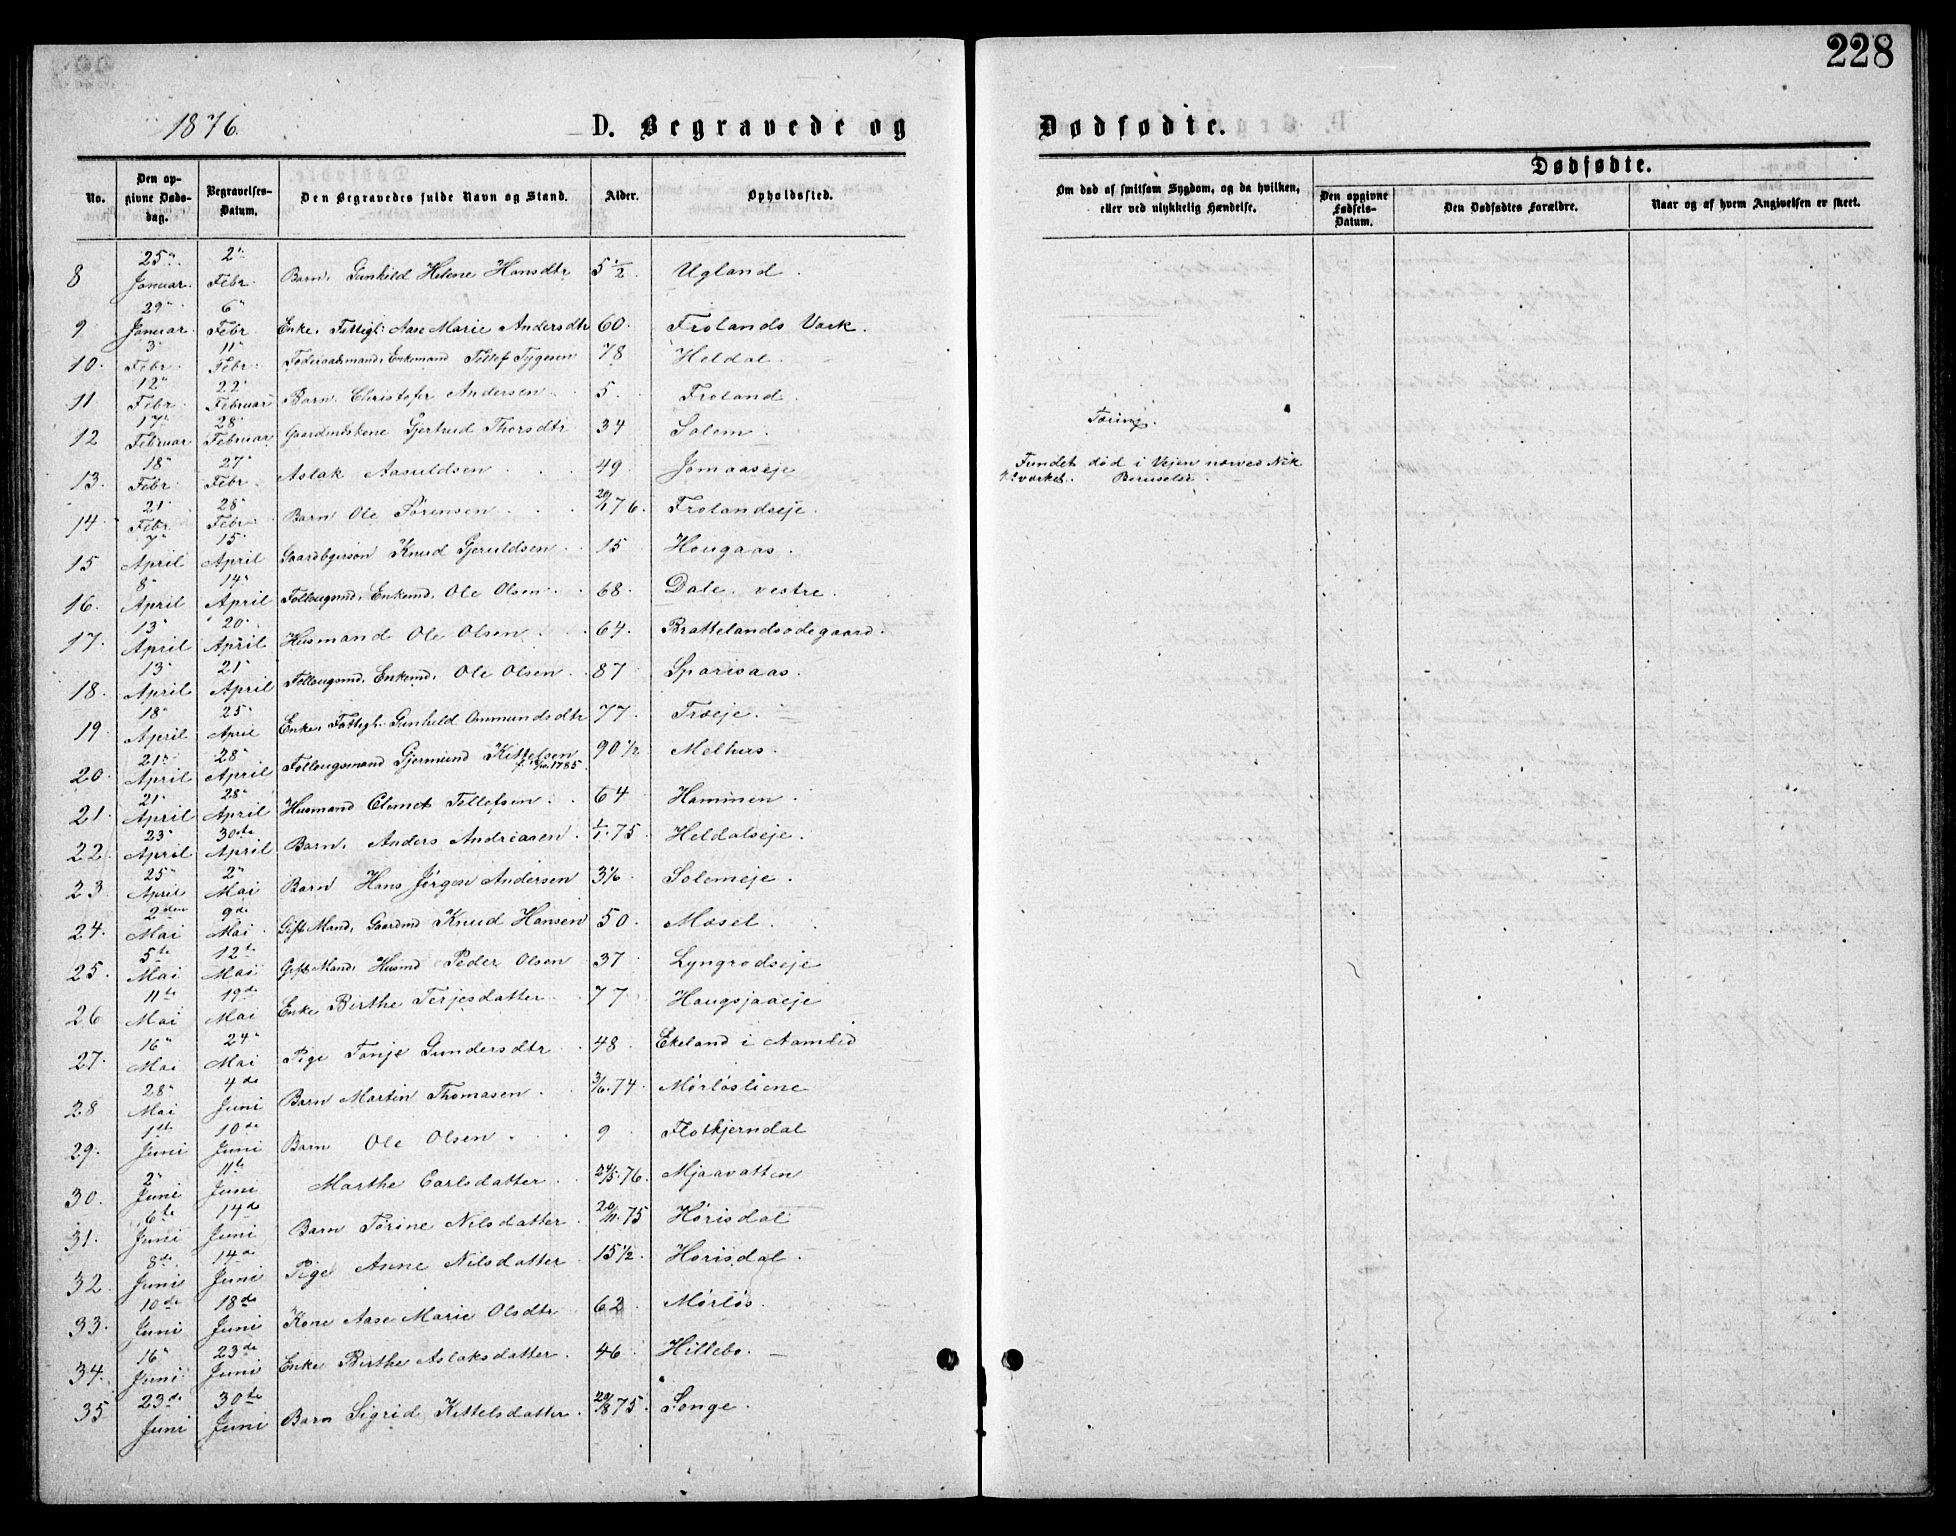 228
1876. D. Begravede og Dødfødte.
Dødfødte.
No. | Den opgivne Dødsdag. | Begravelses-Datum. | Den Begravedes fulde Navn og Stand. | Alder. | Opholdssted. | Om død af smitsom Sygdom, og da hvilken, eller ved ulykkelig Hændelse. | Den opgivne Fødsels-Datum. | Den Dødfødtes Forældre. | Naar og af hvem Angivelsen er skeet.
8 | 25" Januar. | 2" Febr. | Barn. Gunhild Helene Hansdtr | 5 1/2 | Ugland.
9 | 29" Januar | 6" Febr | Enke. Fattigl. Aase Marie Andersdtr | 60. | Frolands Værk.
10. | 3" Febr. | 11" Febr. | Føderaadsmand, Enkemand Tellef Tygesen | 78 | Heldal.
11 | 12" Febr. | 22" Februar | Barn. Christofer Andersen | 5. | Froland.
12 | 17" Februar | 28" Februar | Gaardmdskone Gjertrud Thorsdtr | 34 | Solem. | Tæring.
13. | 18" Febr. | 27" Febr. | Aslak Aasuldsen | 49 | Jomaaseje | Fundet død i Vejen nærved Nikkelværket. Beruselse.
14. | 21" Febr | 28" Febr. | Barn Ole Sørensen | 20/1 76. | Frolandseje.
15 | 7" April | 15" April | Gaardbgersøn Knud Gjeruldsen | 15 | Hougaas.
16. | 8" April | 14" April | Follougsmd, Enkemd, Ole Olsen | 68. | Dale vestre.
17. | 13" April | 20" April | Husmand Ole Olsen | 64. | Brattelandsødegaard.
18. | 13" April | 21" April | Follougsmd, Enkemd, Ole Olsen | 87 | Sparsaas.
19. | 18" April | 25" April | Enke, Fattigl. Gunhild Omundsdtr | 77 | Træje.
20. | 21" April | 28" April | Follougsmand Gjermund Kittelsen f. 1785. | 90 1/2 | Melhus.
21. | 21" April | 28" April | Husmand Clemet Tellefsen | 64 | Hammen.
22. | 23" April | 30te April | Barn. Anders Andreasen | 1/1. 75. | Heldalseje.
23 | 25" April | 2" Mai | Barn Hans Jørgen Andersen | 3 1/6 | Solemeje.
24. | 2den Mai | 9de Mai. | Gift Mand, Gaardmd Knud Hansen | 50. | Mosel.
25. | 5te Mai | 12te Mai | Gift Mand, Husmd Peder Olsen | 37 | Lyngrødseje
26 | 11te Mai | 19de Mai | Enke Birthe Terjesdatter | 77 | Haugsjaaeje
27. | 16" Mai | 24" Mai | Pige Tonje Gundersdtr | 48 | Ekeland i Aamlid
28 | 28" Mai | 4de Juni | Barn Martin Thomasen | 3/6. 74. | Mørløsliene
29. | 1ste Juni | 10de Juni | Barn Ole Olsen | 9 | Flotkjerndal
30. | 2" Juni | 11te Juni | Marthe Carlsdatter | 24/5. 76. | Mjaavatten
31. | 6te Juni | 14de Juni | Barn Torine Nilsdatter | 20/11. 75 | Hørisdal
32. | 8de Juni | 14de Juni | Pige Anne Nilsdatter | 15 1/2. | Hørisdal.
33. | 10de Juni | 18de Juni | Kone Aase Marie Olsdtr | 62 | Mørløs.
34. | 16" Juni | 23de Juni | Enke Birthe Aslaksdatter | 46 | Hillebo.
35 | 23de Juni | 30te Juni | Barn Sigrid Kittelsdatter | 29/8 75. | Songe.